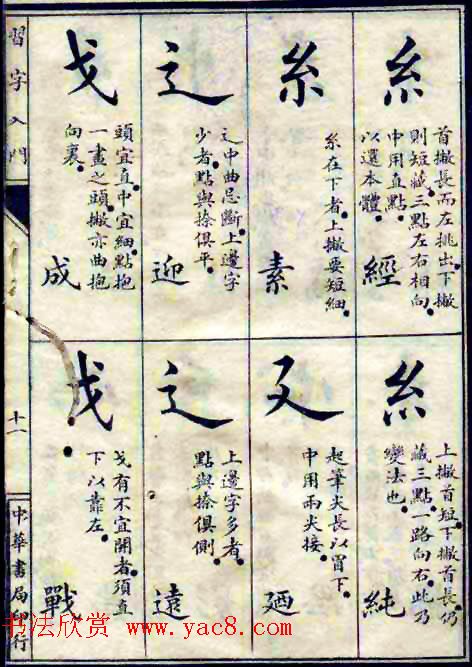 糸
首撇長而左挑出。下撇
則短藏。三點左右相向。
中用直點。
以還本體。
經
糸
糸在下者。上撇要短細。
素
辶
之中曲忌斷。上邊字
少者。點與捺俱平。
迎
戈
頭宜直。中宜細。點抱
一畫之頭。撇亦曲抱
向裏。
成
糸
上撇首短。下撇首長。仍
藏三點。一路向右。此乃
變法也。
純
廴
起筆尖長以冒下。
中用兩尖接。
廼
辶
上邊字多者。
點與捺俱側。
遠
戈
戈有不宜開者。須直
下以靠左。
戰
習字入門
十一
中華書局印行
书法欣赏 www.yac8.com